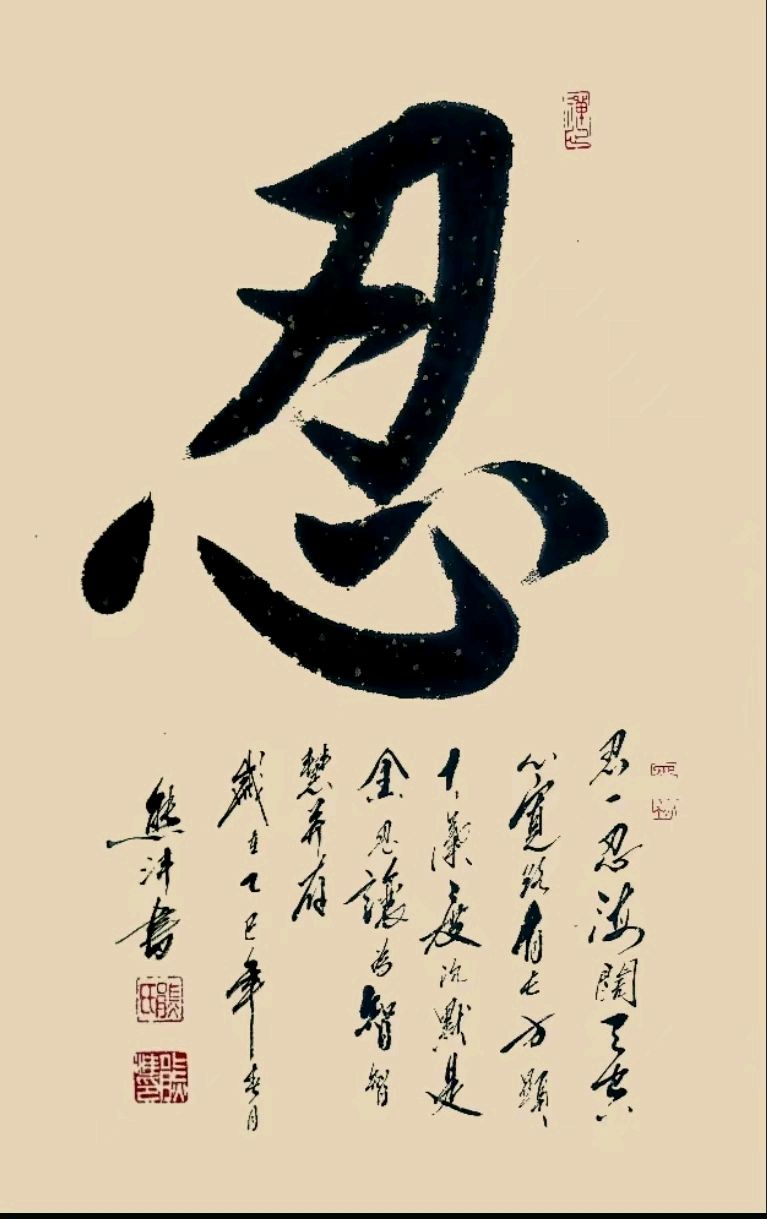 忍
忍一忍海闊天空
心寬路有方顯
度沉默是
金忍讓為智智
慧并存
歲在乙巳年春月
熊書
熊氏